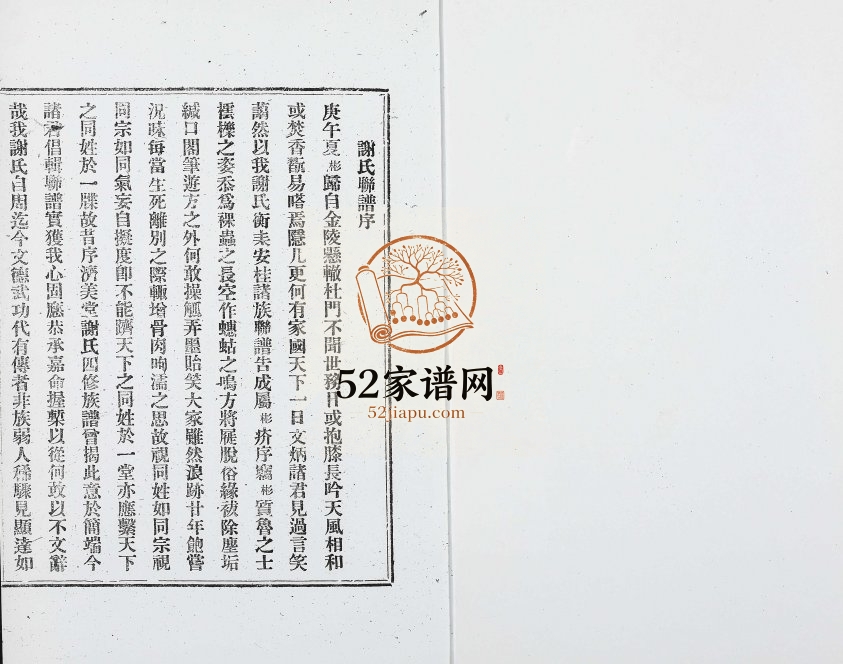 謝氏聯譜序
庚午夏彬歸自金陵懸轍杜門不聞世務日或抱膝長吟天風相和
或焚香斷易嗒焉隱几更何有家國天下一日文炳諸君見過言笑
藹然以我謝氏衡耒安桂諸族聯譜告成屬彬弁序竊彬質魯之士
樗櫟之姿忝為裸蟲之長空作蟪蛄之鳴方將屣脫俗緣祓除塵垢
緘口閣筆遊方之外何敢操觚弄墨貽笑大家雖然浪跡廿年飽嘗
況味每當生死離別之際輒增骨肉呴濡之思故視同姓如同宗視
同宗如同氣妄自擬度卽不能躋天下之同姓於一堂亦應繫天下
之同姓於一牒故昔序濟美堂謝氏四修族譜曾揭此意於簡端今
諸君倡輯聯譜實獲我心固應恭承嘉命握槧以從何敢以不文辭
哉我謝氏自周迄今文德武功代有傳者非族弱人稀驟見顯達如
52家谱网
52jiapu.com